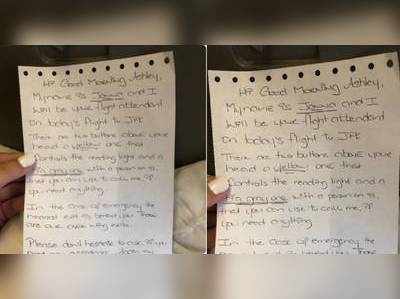 Hi Good Morning Ashley,
My name is Janna and I
will be your flight attendant
on today's flight to JFK
There are two buttons above your
head a yellow one that
controls the reading light and a
big grey one with a person on it,
that you can use to call me, if
you need anything.
In the case of emergency the
nearest exit is behind you. There
are over wing exits.
Please don't hesitate to ask if you
Hi Good Morning Ashley,
My name is Janna and I
will be your flight attendant
on today's flight to JFK
There are two buttons above your
head a yellow one that
controls the reading light and a
big grey one with a person on it,
that you can use to call me, if
you need anything.
In the case of emergency the